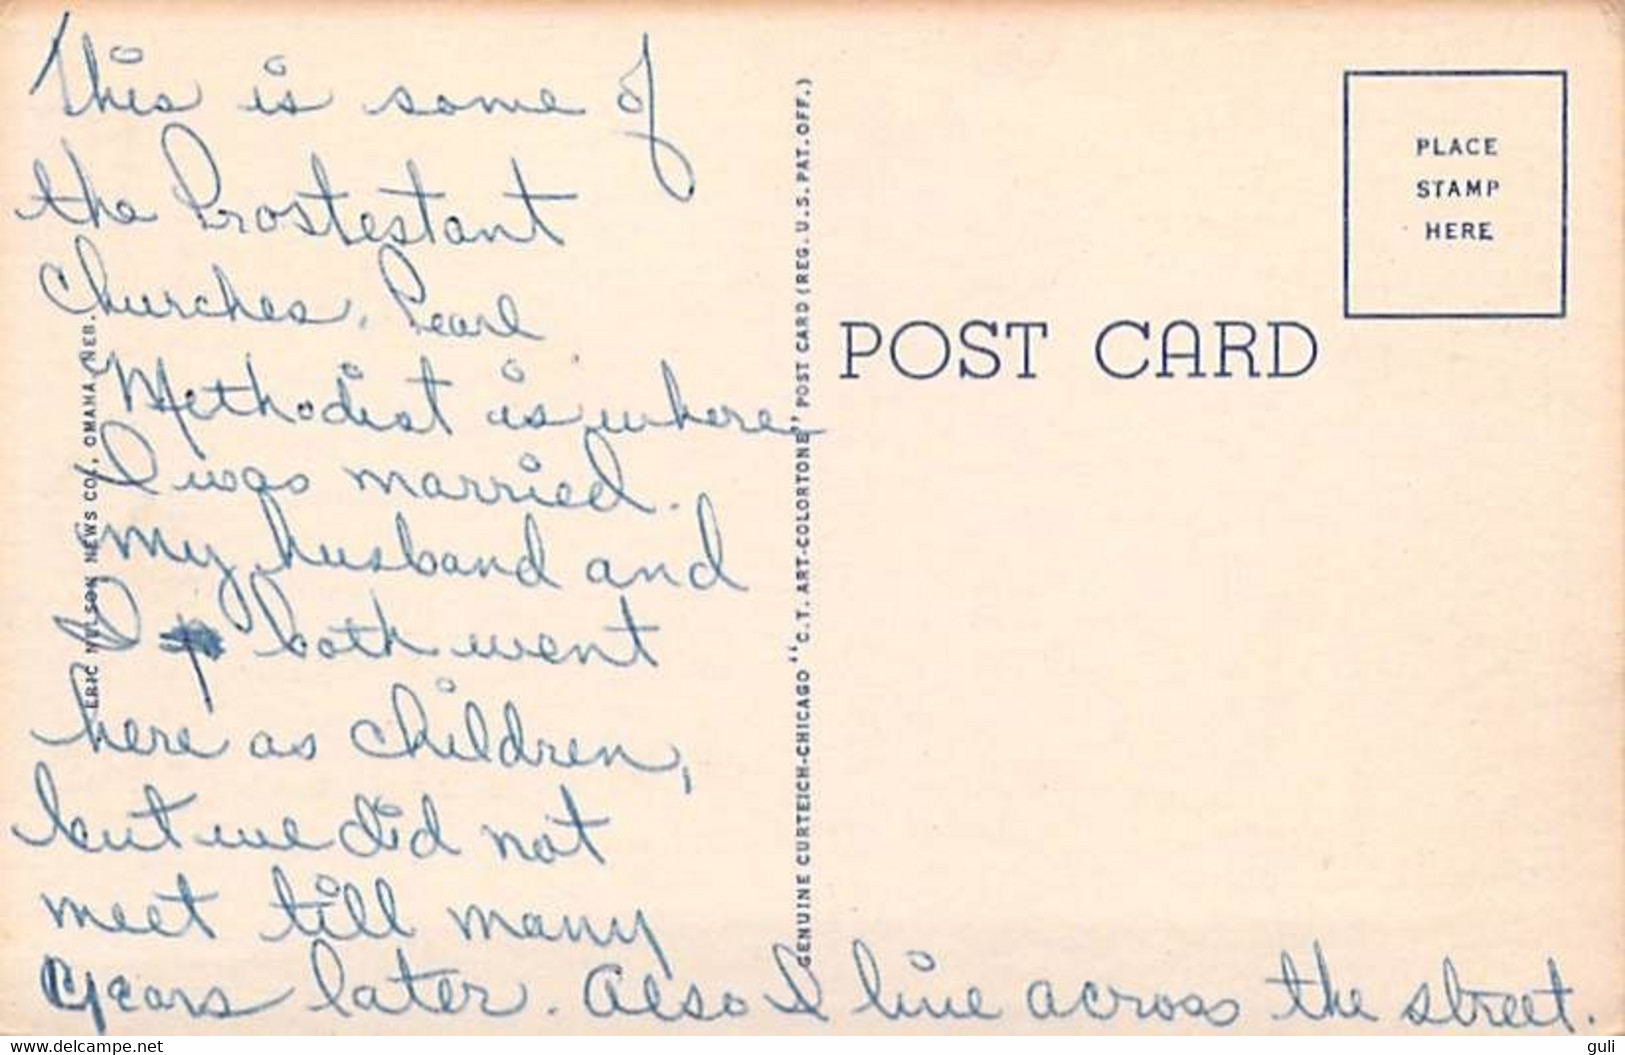 This is some of
the Prostestant
Churches. Pearl
Methodist is where
I was married.
My husband and
I both went
here as children,
but we did not
meet till many
years later. Also I live across the street.
ERIC NELSON NEWS CO., OMAHA, NEB.
GENUINE CURTEICH-CHICAGO "C.T. ART-COLORTONE" POST CARD (REG. U.S. PAT. OFF.)
POST CARD
PLACE
STAMP
HERE
delcampe.net
guli